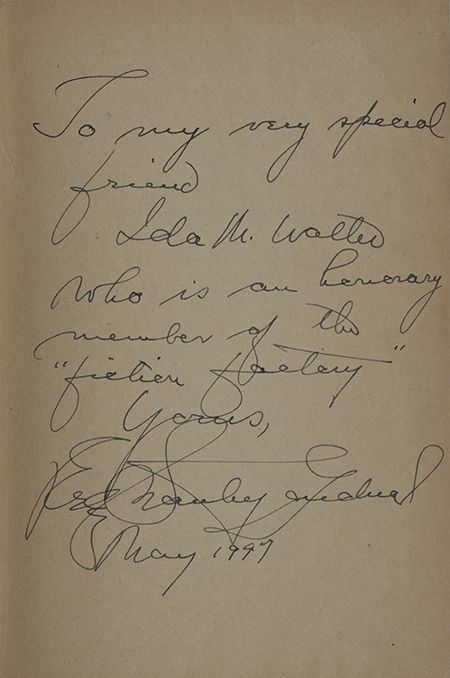 To my very special
friend
Ida M. Walter
who is an honorary
member of the
"fiction factory"
Yours,
Erle Stanley Gardner
May 1947